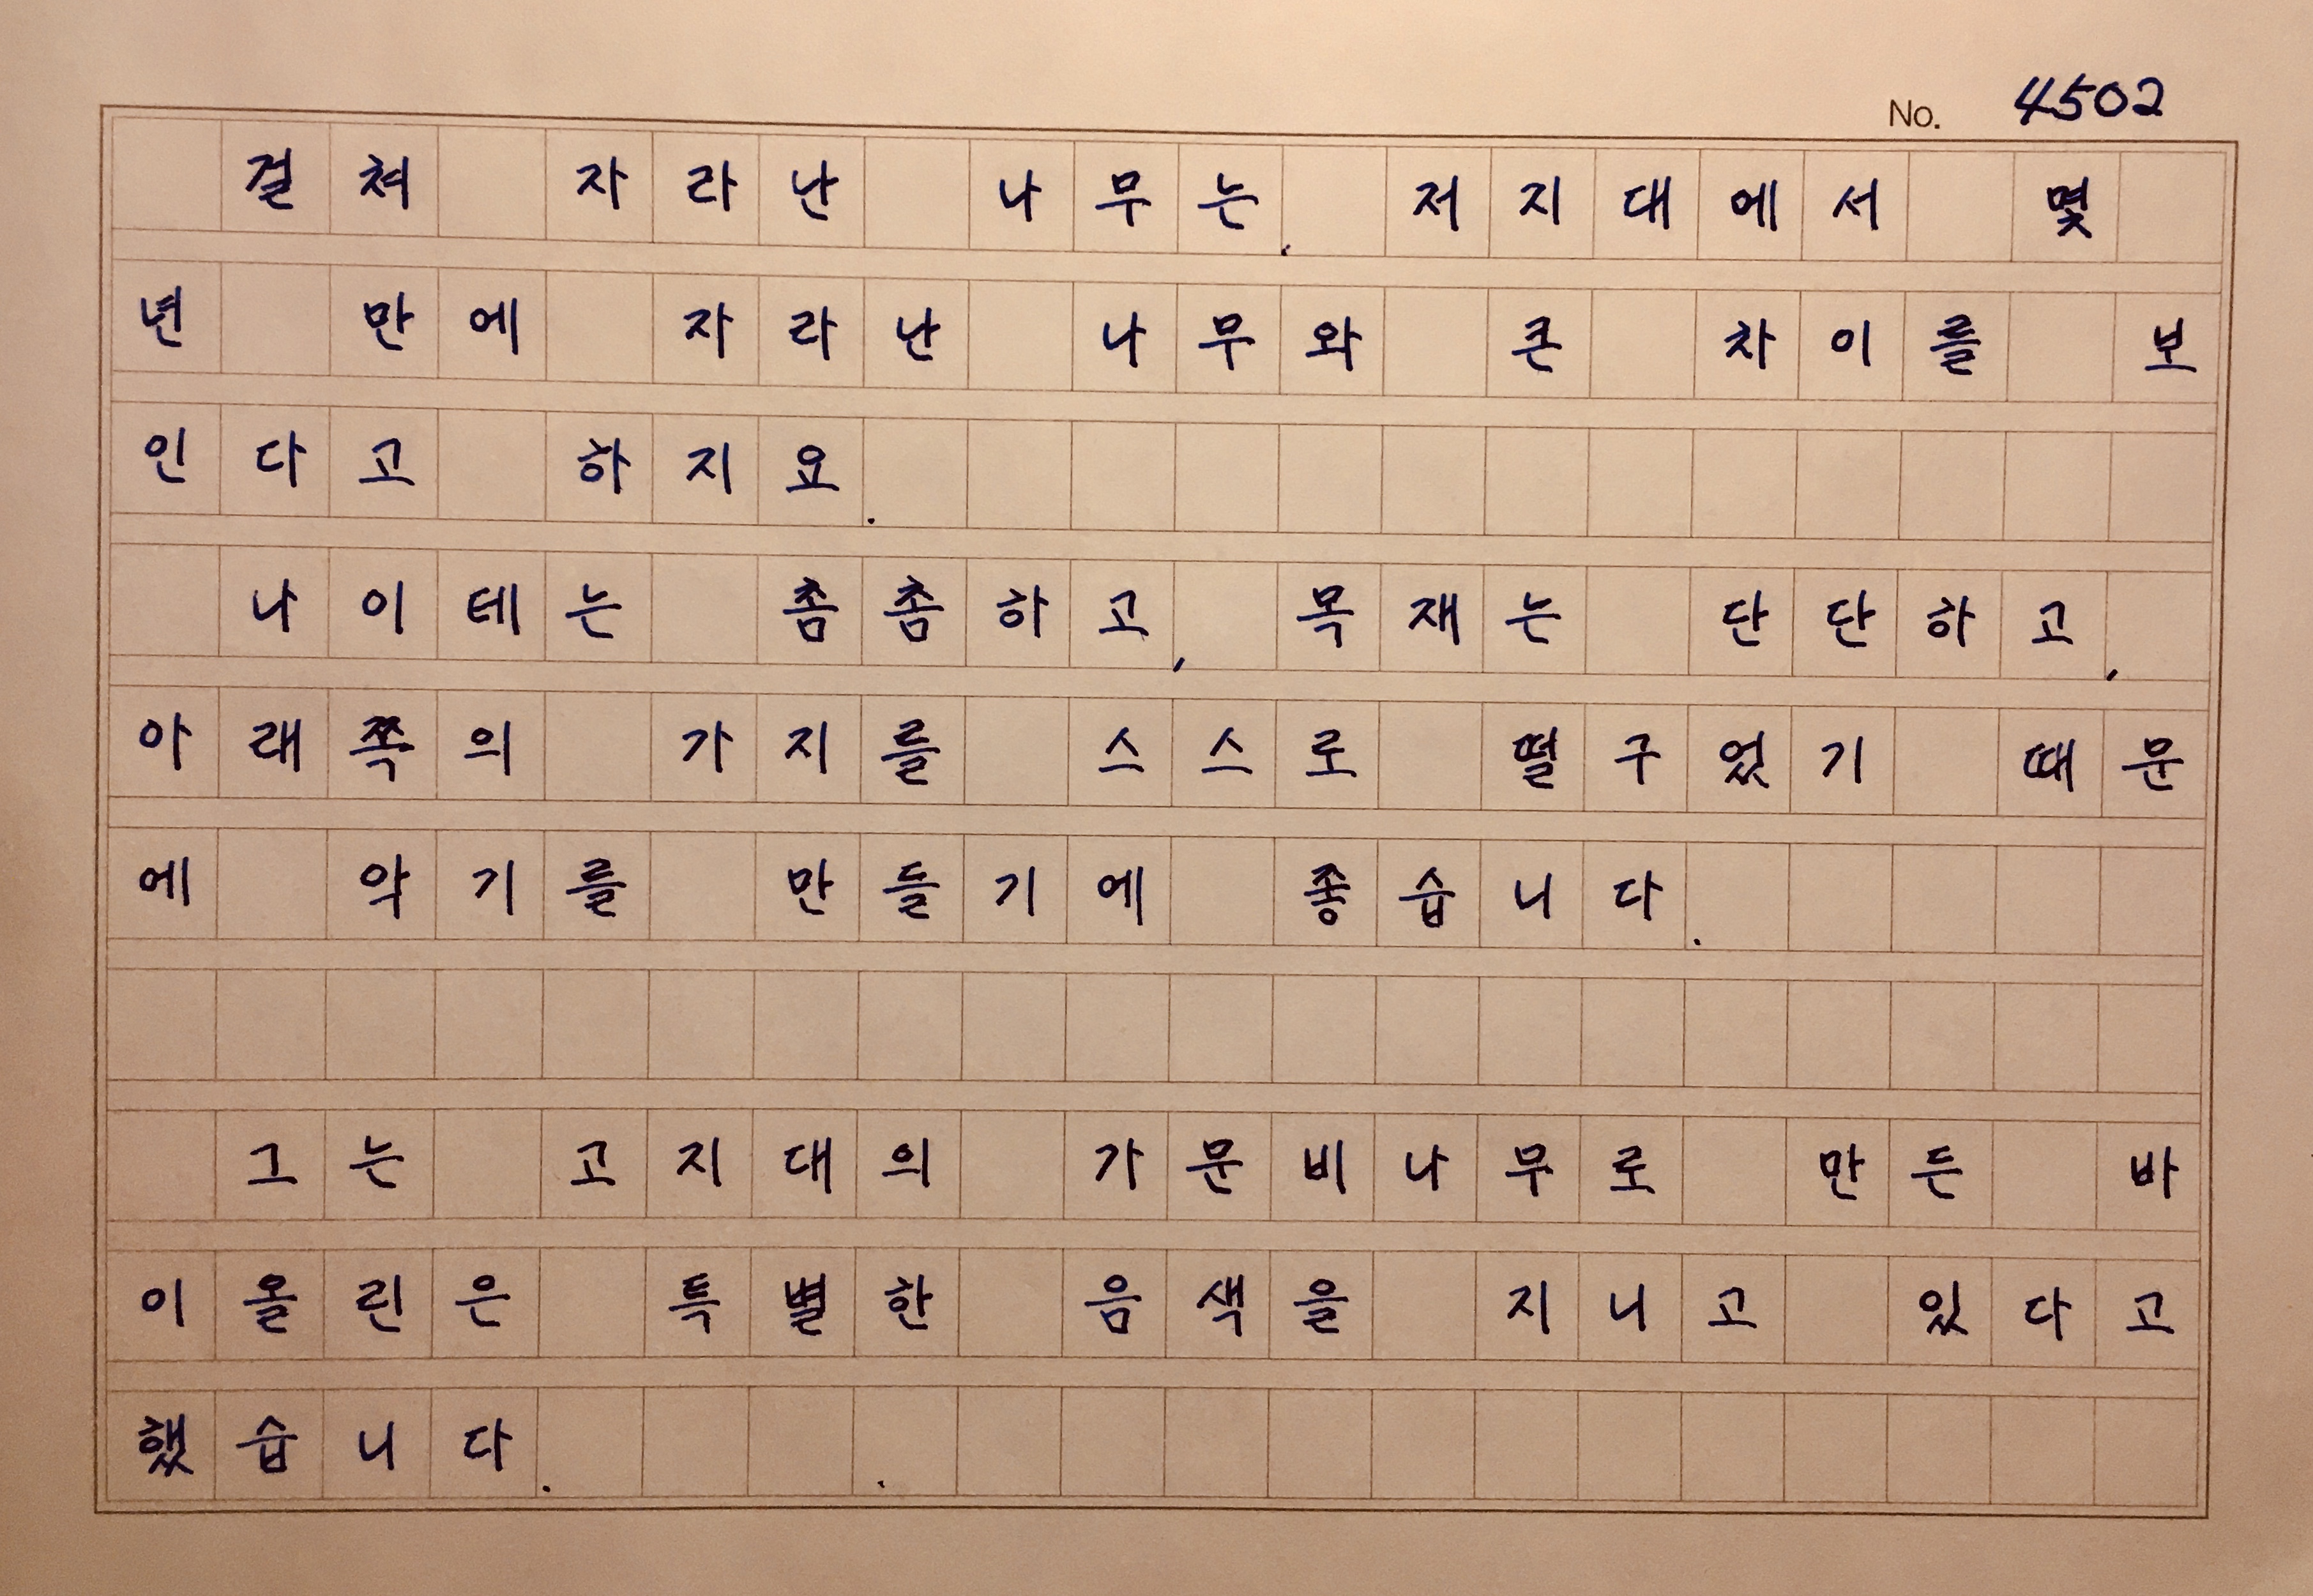 No. 4502
걸쳐 자라난 나무는, 저지대에서 몇
년 만에 자라난 나무와 큰 차이를 보
인다고 하지요.
나이테는 촘촘하고, 목재는 단단하고,
아래쪽의 가지를 스스로 떨구었기 때문
에 악기를 만들기에 좋습니다.
그는 고지대의 가문비나무로 만든 바
이올린은 특별한 음색을 지니고 있다고
했습니다.